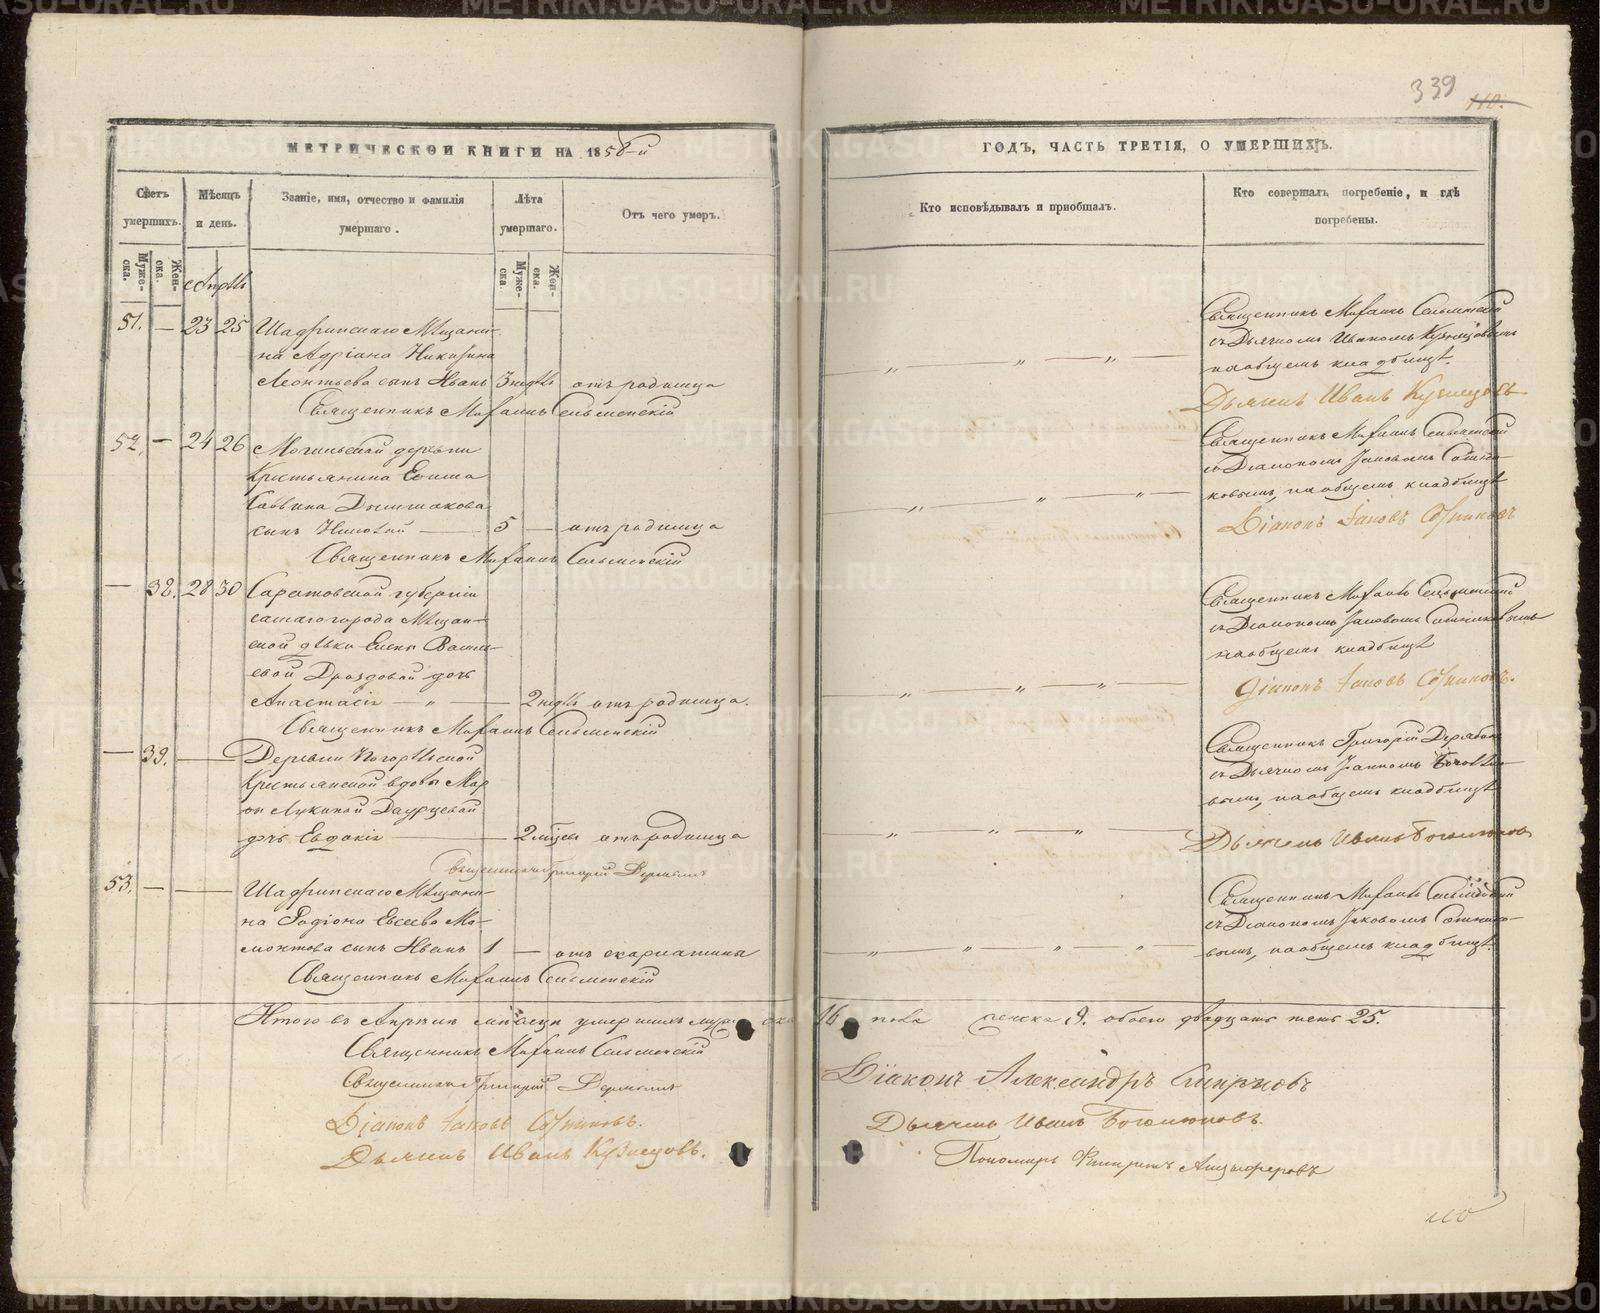 339
110.
МЕТРИЧЕСКОЙ КНИГИ НА 1858-й
ГОДЪ, ЧАСТЬ ТРЕТІЯ, О УМЕРШИХЪ.
Счетъ умершихъ.
Муже-ска.
Жен-ска.
Мѣсяцъ и день.
Званіе, имя, отчество и фамилія умершаго.
Лѣта умершаго.
Муже-ска.
Жен-ска.
Отъ чего умеръ.
Кто исповѣдывалъ и пріобщалъ.
Кто совершалъ погребеніе, и гдѣ погребены.
Апрѣль
51. — 23 25 Шадринскаго Мѣщани-
на Адріана Никитина
Леонтьева сынъ Иванъ 3 недѣль отъ родимца
Священникъ Михаилъ Сельменскій
Священникъ Михаилъ Сельменскій
съ Дьячкомъ Иваномъ Кузнецовымъ
на общемъ кладбищѣ.
Дьячекъ Иванъ Кузнецовъ
52. — 24 26 Могильской деревни
Крестьянина
Саввина сынъ 5 — отъ родимца
Священникъ Михаилъ Сельменскій
Священникъ Михаилъ Сельменскій
съ Діакономъ Іаковомъ Сотни-
ковымъ, на общемъ кладбищѣ
Діаконъ Іаковъ Сотниковъ
— 38. 28 30 Саратовской губерніи
самаго города Мѣщан-
ской дѣвки Елены Васи-
евой Дроздовой дочь
Анастасія — 2 недѣль отъ родимца.
Священникъ Михаилъ Сельменскій
Священникъ Михаилъ Сельменскій
съ Діакономъ Іаковомъ Сотниковымъ
на общемъ кладбищѣ
Діаконъ Іаковъ Сотниковъ.
— 39. — Деревни Погорѣльской
Крестьянской вдовы Мар
ьи Лукиной Даурцевой
дочь Евдокія — 2 мѣсяц отъ родимца
Священникъ Григорій Дерябинъ
Священникъ Григорій Дерябинъ
съ Дьячкомъ
вымъ, на общемъ кладбищѣ
Дьячекъ Иванъ Боголюповъ
53. — — Шадринскаго Мѣщани-
на Родіона Евсеева Ма-
монтова сынъ Иванъ 1 — отъ скарлатины
Священникъ Михаилъ Сельменскій
Священникъ Михаилъ Сельменскій
съ Діакономъ Іаковомъ Сотнико-
вымъ, на общемъ кладбищѣ.
Итого въ Апрѣлѣ мѣсяцѣ умершихъ мужеска 16 пола женска 9. обоего двадцать пять 25.
Священникъ Михаилъ Сельменскій
Священникъ Григорій Дерябинъ
Діаконъ Іаковъ Сотниковъ.
Дьячекъ Иванъ Кузнецовъ.
Діаконъ Александръ Смирновъ
Дьячекъ Иванъ Боголюповъ.
Пономарь
110
METRIKI.GASO-URAL.RU